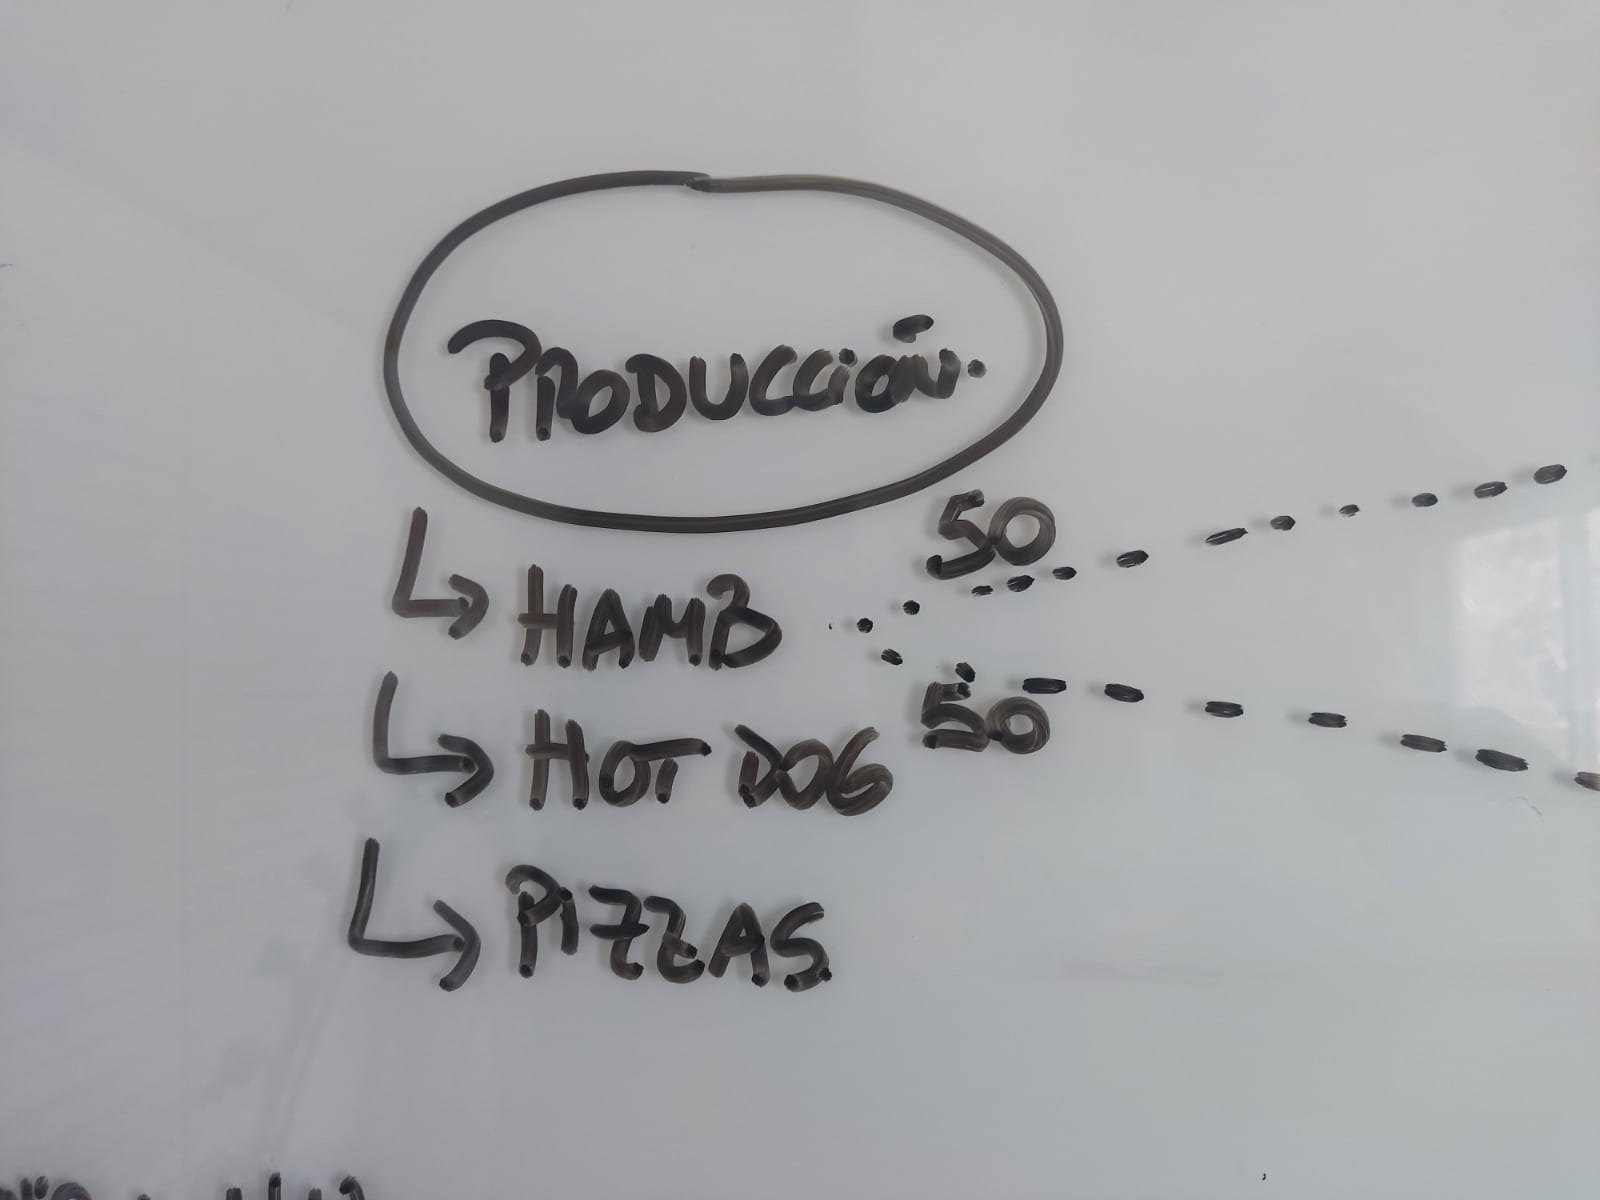 PRODUCCIÓN.
50
HAMB
50
HOT DOG
PIZZAS